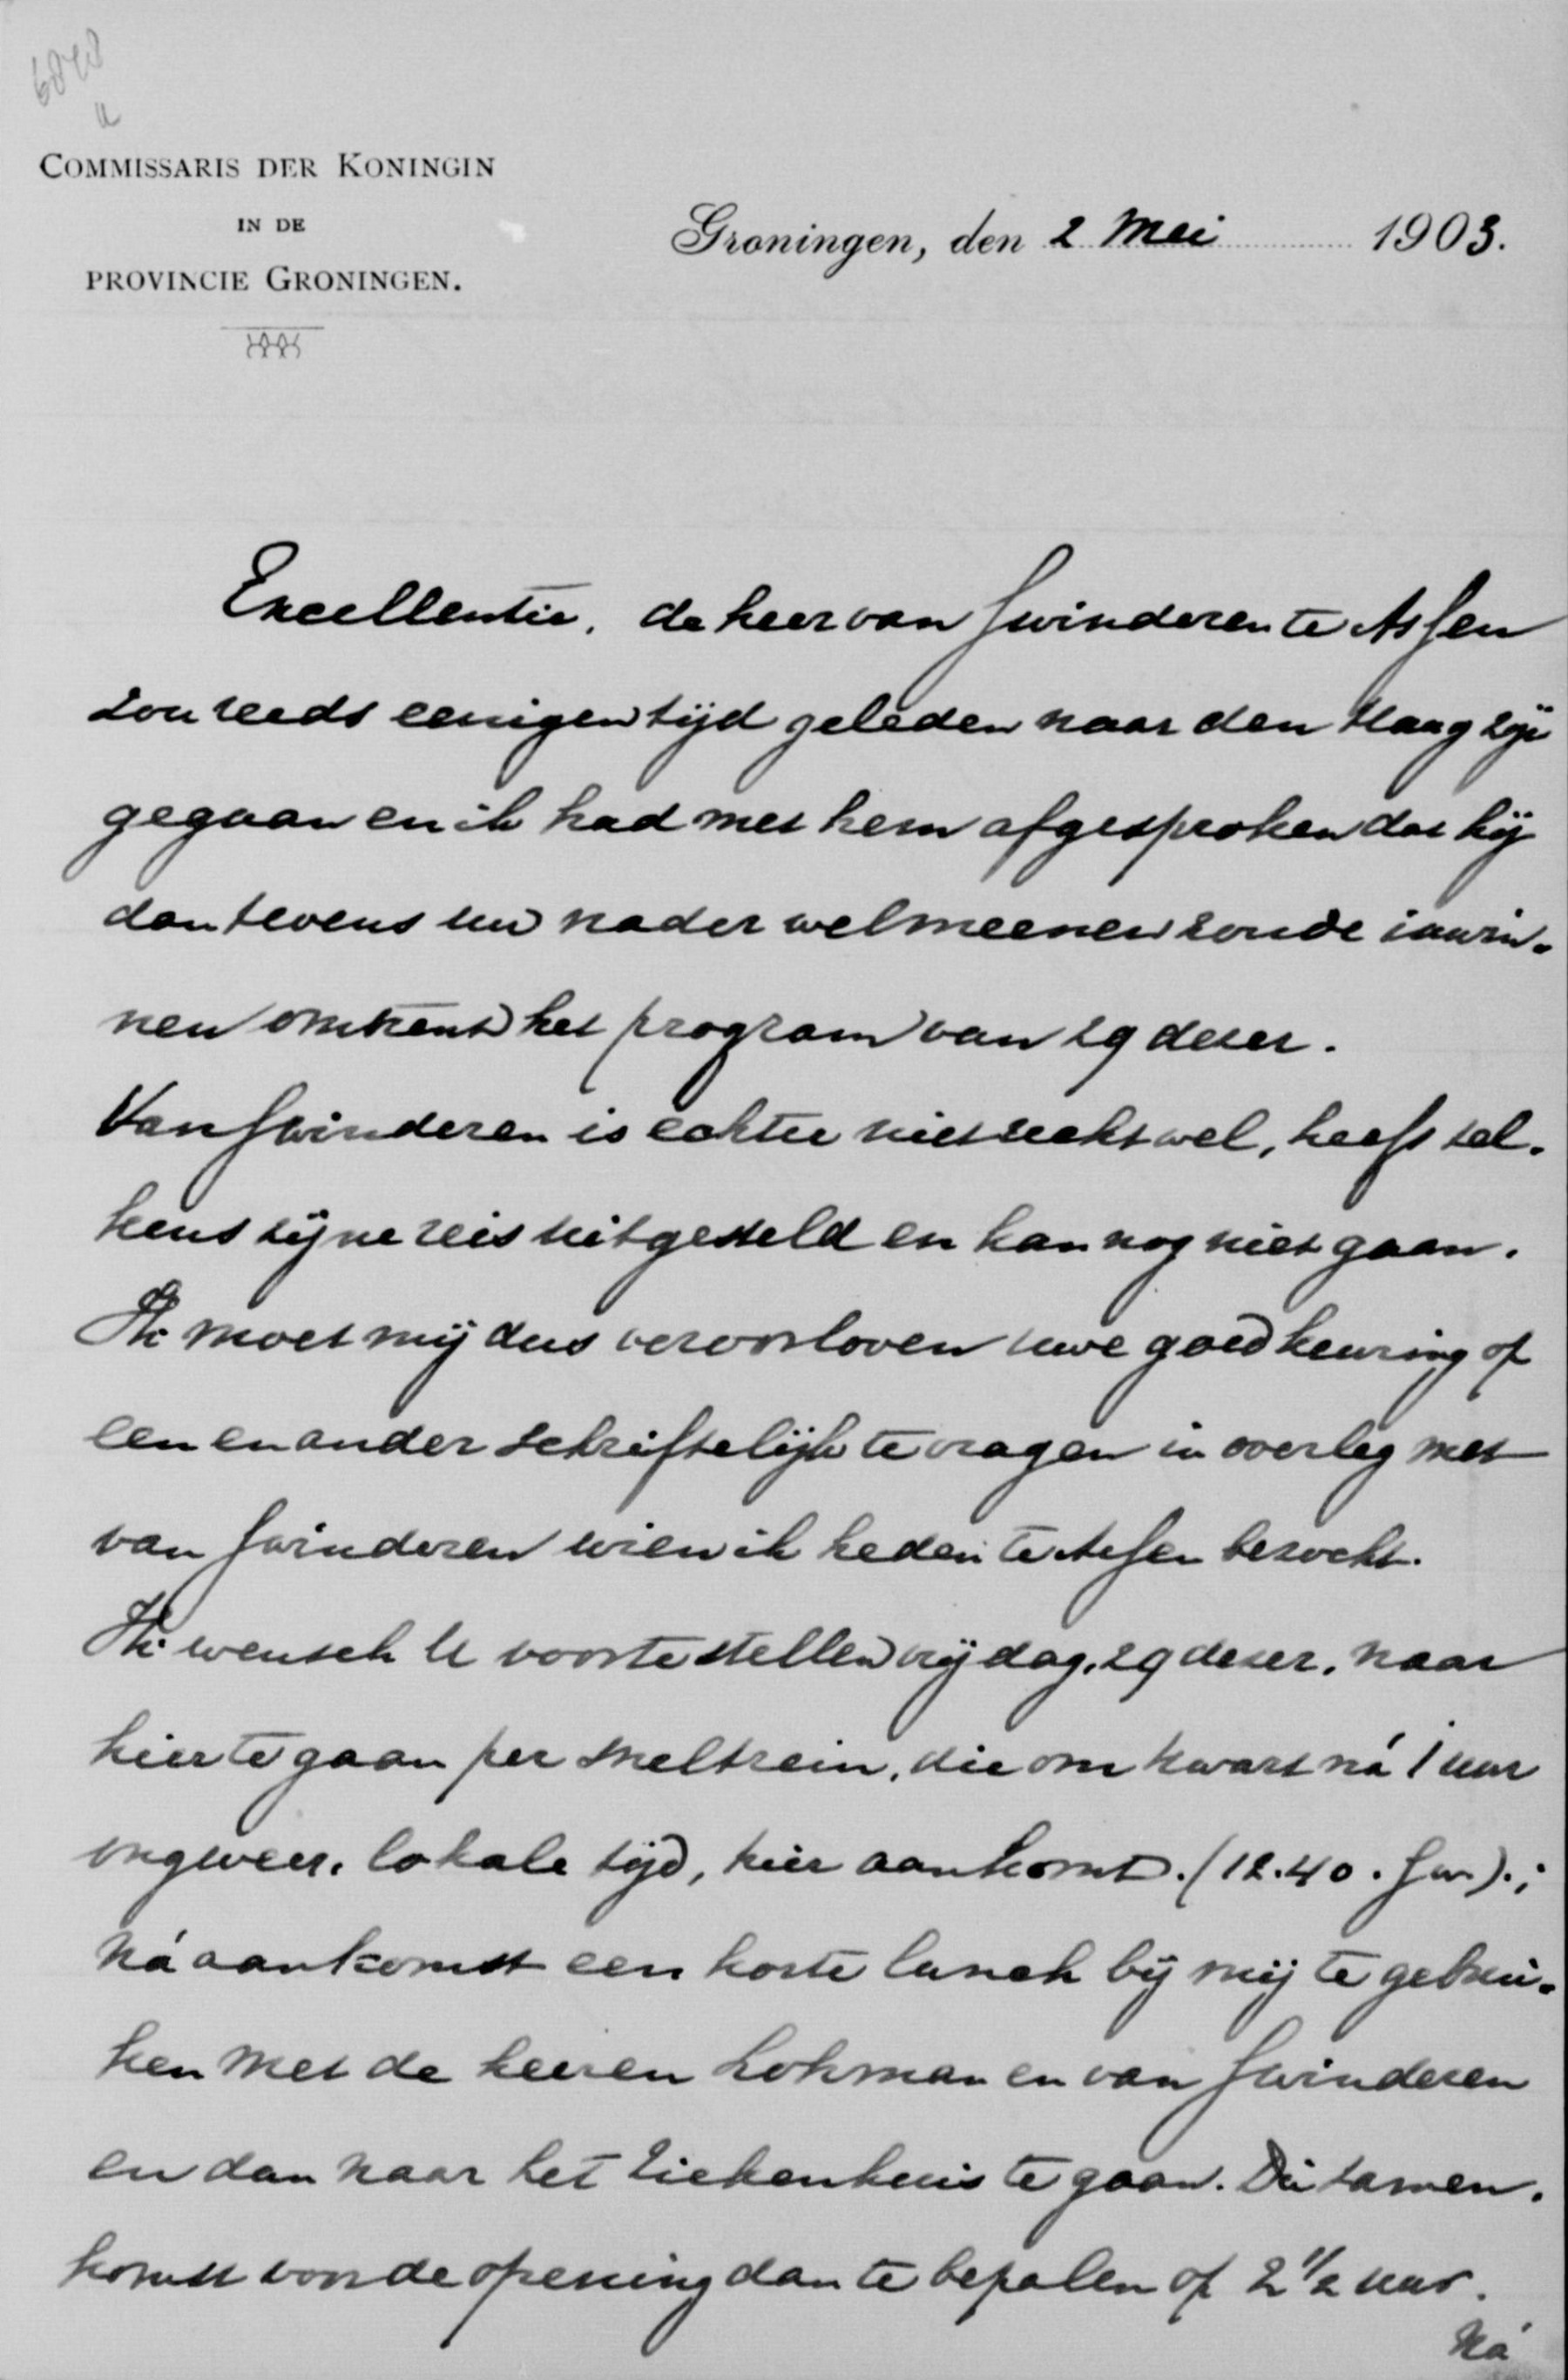 6848
a
COMMISSARIS DER KONINGIN
IN DE
PROVINCIE GRONINGEN.
Groningen, den 2 Mei 1903.
Excellentie, de heer van Swinderen te Assen
zou reeds eenigen tijd geleden naar den Haag zijn
gegaan en ik had met hem afgesproken dat hij
dan tevens uw nader welmeenen zoude inwin-
nen omtrent het program van 29 dezer.
Van Swinderen is echter niet recht wel, heeft tel-
kens zijne reis uitgesteld en kan nog niet gaan.
Ik moet mij dus veroorloven uwe goedkeuring op
een en ander schriftelijk te vragen in overleg met
van Swinderen wien ik heden te Assen bezocht.
Ik wensch U voor te stellen vrijdag, 29 dezer, naar
hier te gaan per sneltrein, die om kwart ná 1 uur
ongeveer, lokale tijd, hier aankomt. (12.40. Gw.).;
ná aankomst een korte lunch bij mij te gebrui-
ken met de heeren Lohman en van Swinderen
en dan naar het Ziekenhuis te gaan. De samen-
komst voor de opening dan te bepalen op 2 1/2 uur.
Ná